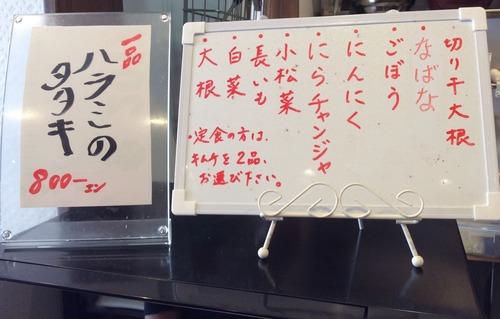 一品
ハラミの
タタキ
800ー
エン
切り干大根
・なばな
・ごぼう
・にんにく
・にらチャンジャ
・小松菜
・長いも
・白菜
・大根
・定食の方は、
キムチを2品、
お選び下さい。